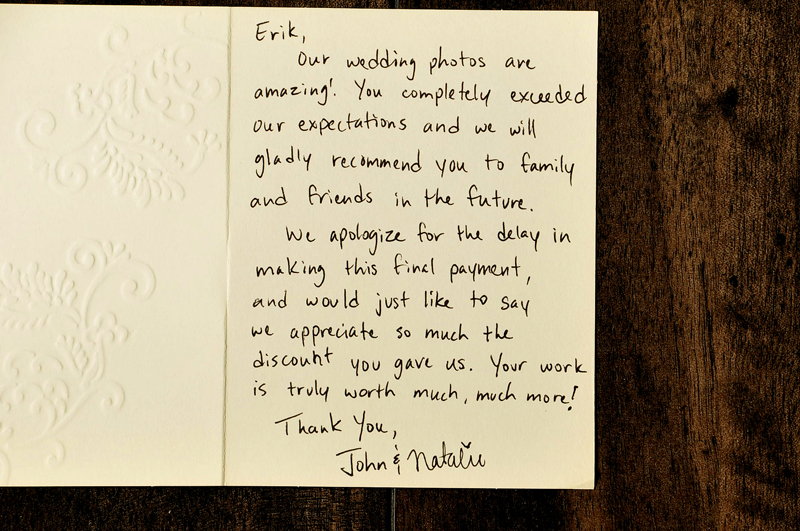 Erik,
Our wedding photos are
amazing! You completely exceeded
our expectations and we will
gladly recommend you to family
and friends in the future.
We apologize for the delay in
making this final payment,
and would just like to say
we appreciate so much the
discount you gave us. Your work
is truly worth much, much more!
Thank You,
John & Natalie